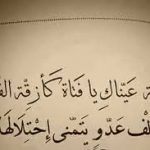 عيناكِ يا فتاة كأزقة
عدو يتمنى إحتلالها